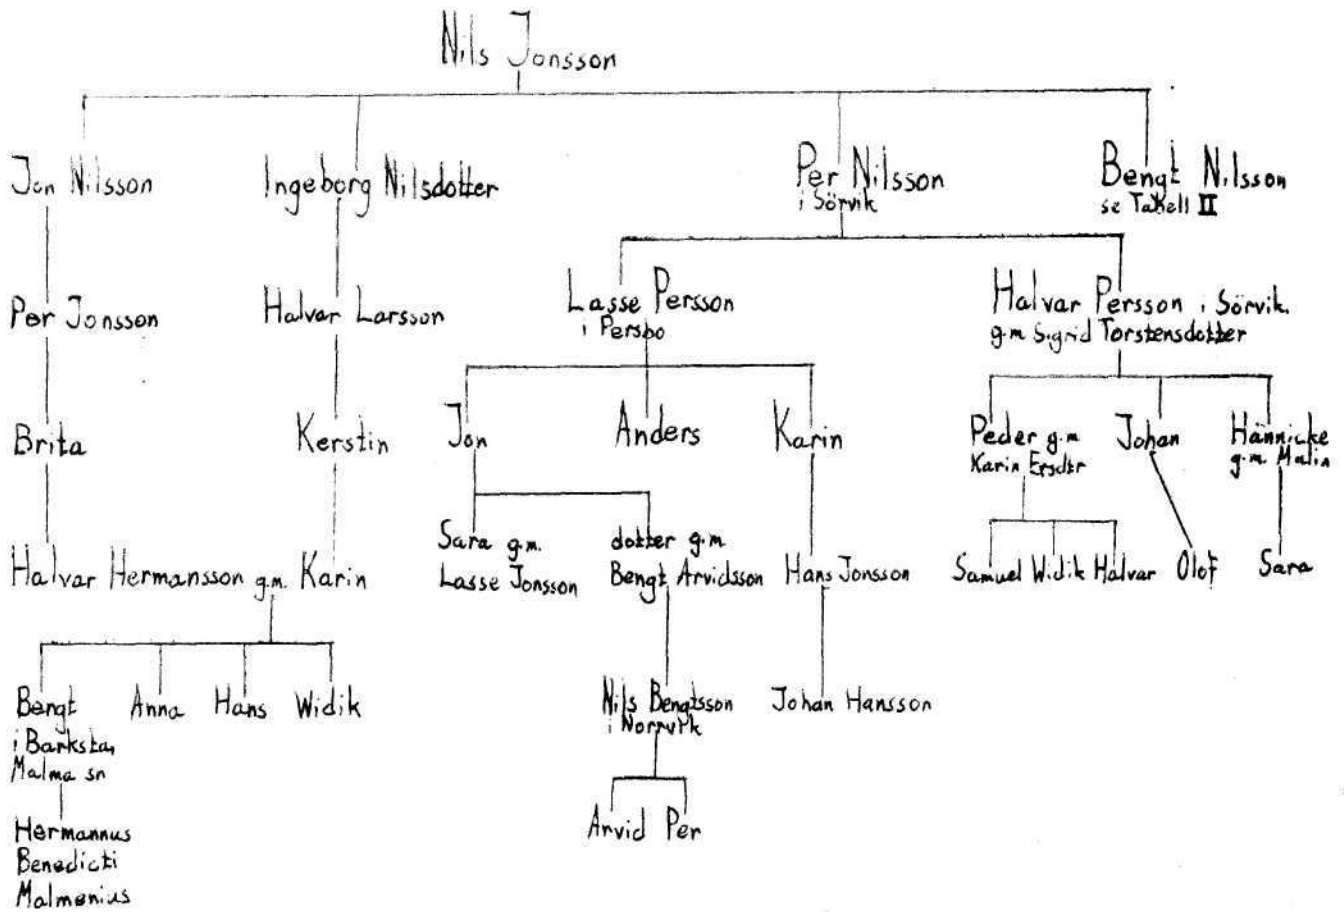 Nils Jonsson
Jon Nilsson
Ingeborg Nilsdotter
Per Nilsson
i Sörvik
Bengt Nilsson
se Tabell II
Per Jonsson
Halvar Larsson
Lasse Persson
i Persbo
Halvar Persson i Sörvik.
g.m Sigrid Torstensdotter
Brita
Kerstin
Jon
Anders
Karin
Peder g.m
Karin Ersdtr
Johan
Hännicke
g.m. Malin
Halvar Hermansson g.m. Karin
Sara g.m.
Lasse Jonsson
dotter g.m
Bengt Arvidsson
Hans Jonsson
Samuel Widik Halvar
Olof
Sara
Bengt
i Barksta,
Malma sn
Anna
Hans
Widik
Nils Bengtsson
i Norrvik
Johan Hansson
Arvid Per
Hermannus
Benedicti
Malmenius